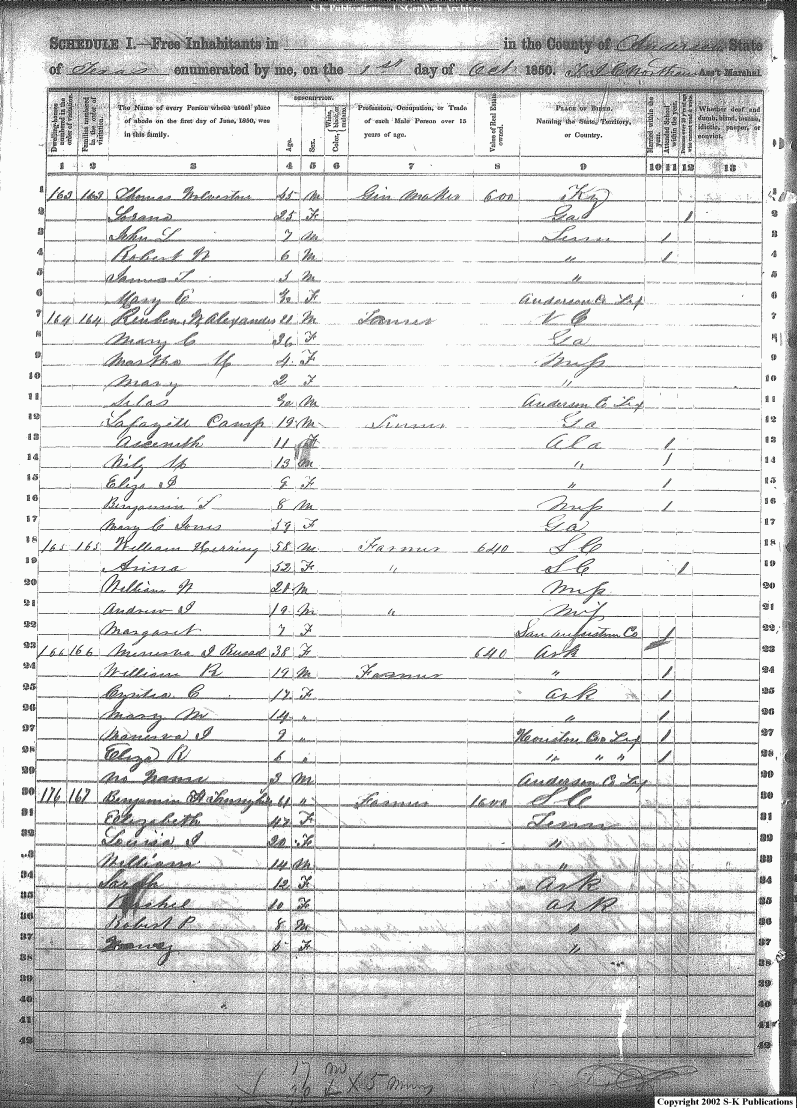 S-K Publications - USGenWeb Archives
SCHEDULE I.—Free Inhabitants in in the County of Anderson State
of Texas enumerated by me, on the 1st day of Oct 1850. Ass't Marshal.
Dwelling-houses numbered in the order of visitation.
Families numbered in the order of visitation.
The Name of every Person whose usual place of abode on the first day of June, 1850, was in this family.
DESCRIPTION.
Age.
Sex.
Color, White, black, or mulatto.
Profession, Occupation, or Trade of each Male Person over 15 years of age.
Value of Real Estate owned.
PLACE OF BIRTH. Naming the State, Territory, or Country.
Married within the year.
Attended School within the year.
Persons over 20 y'rs of age who cannot read & write.
Whether deaf and dumb, blind, insane, idiotic, pauper, or convict.
1 2 3 4 5 6 7 8 9 10 11 12 13
1 163 163 Thomas Wolverton 45 M Gin Maker 600 Ky 1
2 25 F Ga 1 2
3 John L 7 M Tenn 1 3
4 Robert N 6 M " 1 4
5 James T 3 M " 5
6 Mary E F Anderson Co Tex 6
7 164 164 Reuben Alexander M Farmer N C 7
8 Mary C 26 F Ga 8
9 Martha 4 F Miss 9
10 Mary 2 F " 10
11 Silas M Anderson Co Tex 11
12 Lafayett Camp 19 M Farmer Ga 12
13 Asceneth 11 F Ala 1 13
14 13 M " 1 14
15 Eliza J 9 F " 1 15
16 Benjamin T 8 M Miss 1 16
17 Mary C Jones 59 F Ga 17
18 165 165 William Herring 58 M Farmer 640 S C 18
19 Anna 52 F " S C 1 19
20 William W 21 M Miss 20
21 Andrew J 19 M " Miss 21
22 Margaret 7 F San Augustun Co 1 22
23 166 166 Minerva J 38 F 640 Ark 23
24 William R 19 M Farmer " 1 24
25 C 17 F Ark 1 25
26 Mary M 14 " " 1 26
27 Manerva J 9 " Houston Co Tex 1 27
28 Eliza R 6 " " " " 1 28
29 No Name 3 M Anderson Co Tex 29
30 176 167 Benjamin 61 " Farmer 1600 S C 30
31 Elizabeth 47 F Tenn 31
32 Louisa J 20 F " 32
33 William 14 M " 33
34 Sarah 12 F Ark 34
35 Rachel 10 F Ark 35
36 Robert P 8 M " 36
37 5 F " 37
38 38
39 39
40 40
41 41
42 42
17 m
20 f X 5
Copyright 2002 S-K Publications